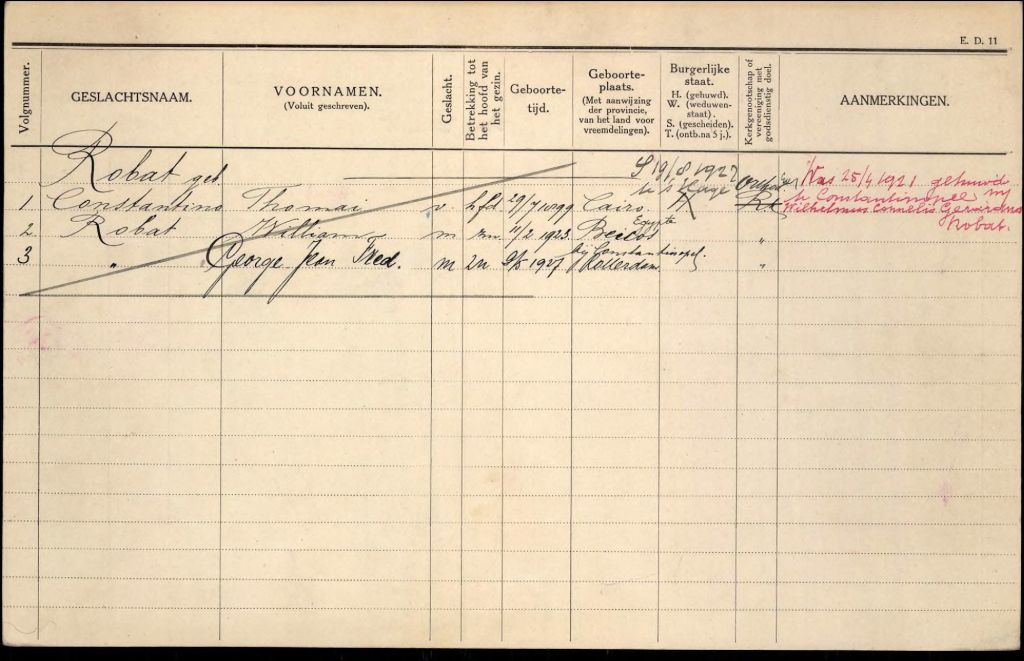 E. D. 11
Volgnummer.
GESLACHTSNAAM.
VOORNAMEN.
(Voluit geschreven).
Geslacht.
Betrekking tot
het hoofd van
het gezin.
Geboorte-
tijd.
Geboorte-
plaats.
(Met aanwijzing
der provincie,
van het land voor
vreemdelingen).
Burgerlijke
staat.
H. (gehuwd).
W. (weduwen-
staat).
S. (gescheiden).
T. (ontb. na 5 j.).
Kerkgenootschap of
vereeniging met
godsdienstig doel.
AANMERKINGEN.
Robat geb.
S 19/8 1927
te 's Hage
1 Constantino Thomai v. hfd 29/7 1899 Cairo
Egypte
Was 25/4 1921 gehuwd
te Constantinopee mij
Wilhelmus Cornelis Gerardus
Robat.
2 Robat William m zn 11/2 1923 Beicos "
bij Constantinopel.
3 " George Jean Fred. m zn 1927 Rotterdam "